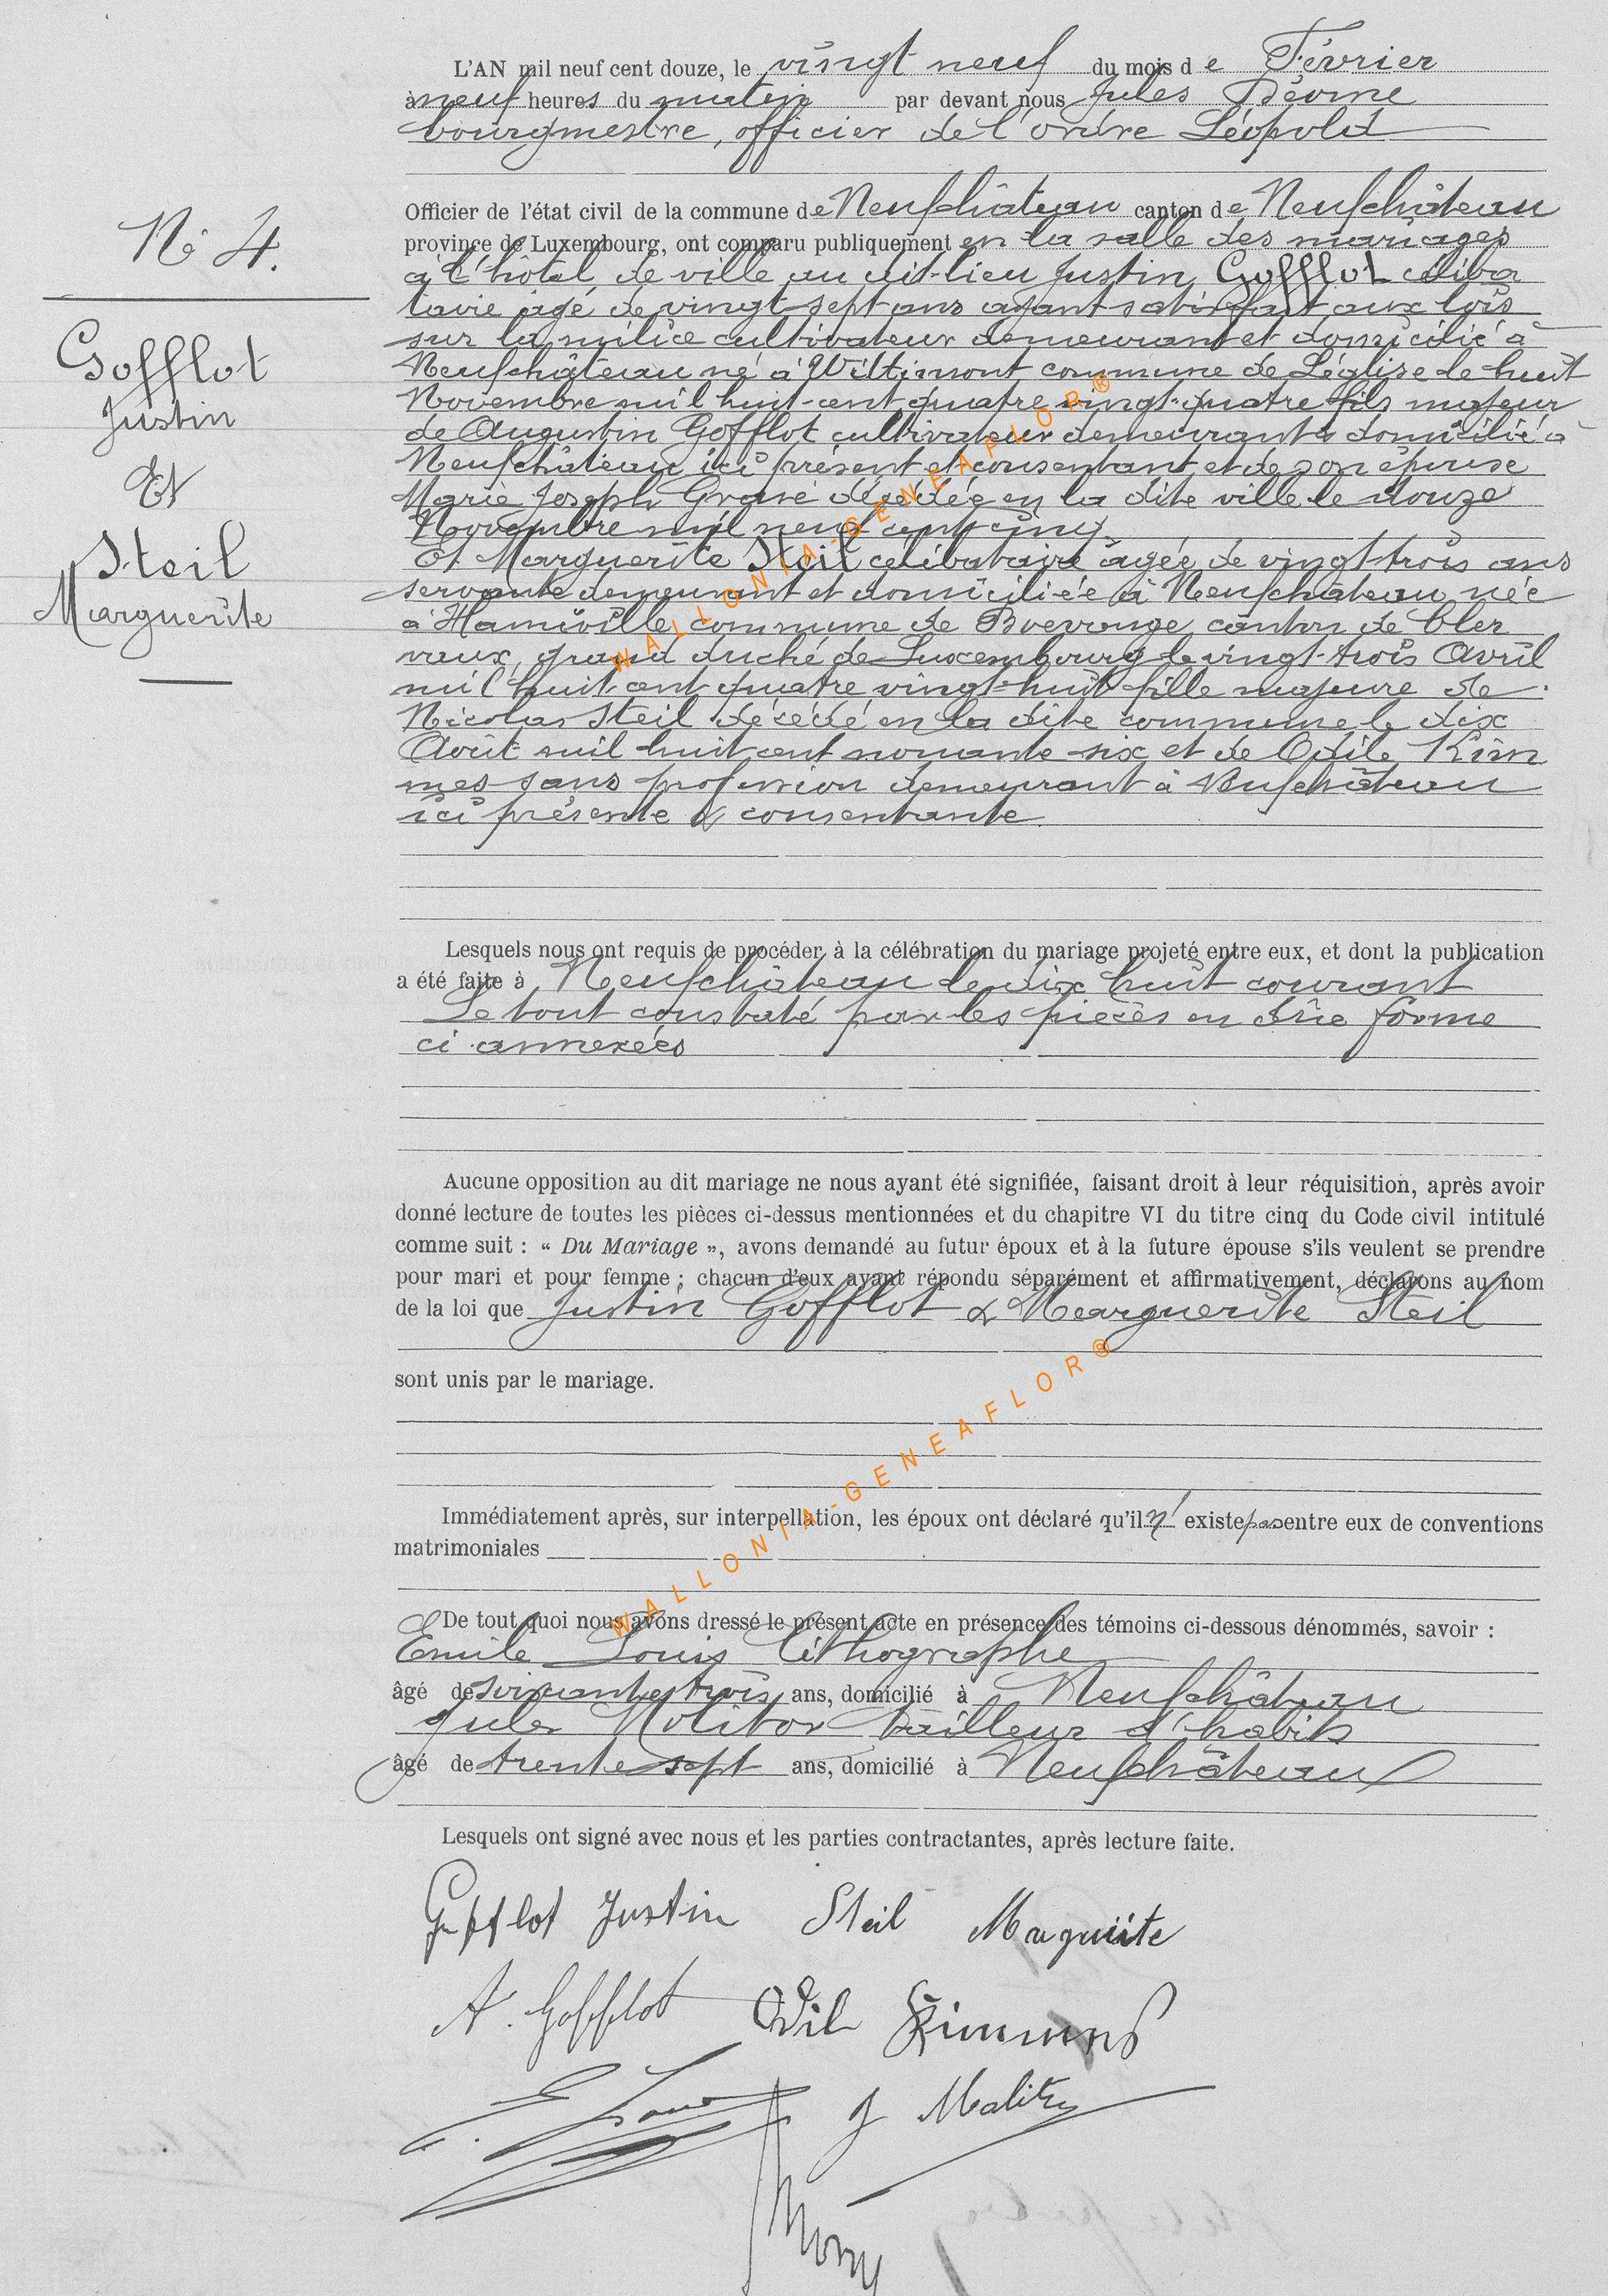 L'AN mil neuf cent douze, le vingt neuf du mois de Février
à neuf heures du matin par devant nous Jules
bourgmestre, officier de l'ordre Léopold
Officier de l'état civil de la commune de Neufchâteau canton de Neufchâteau
province de Luxembourg, ont comparu publiquement en la salle des mariages
à l'hôtel de ville au dit-lieu Justin Gofflot céliba
taire âgé de vingt sept ans ayant satisfait aux lois
sur la milice cultivateur demeurant et domicilié à
Neufchâteau né à Wittimont commune de Léglise le huit
Novembre mil huit-cent quatre vingt-quatre fils majeur
de Augustin Gofflot cultivateur demeurant & domicilié à
Neufchâteau ici présent et consentant et de son épouse
Marie Joseph décédée en la dite ville le douze
Novembre mil neuf cent cinq
Et Marguerite Steil célibataire âgée de vingt-trois ans
servante demeurant et domiciliée à Neufchâteau née
à Hamiville commune de Boevange canton de Cler
vaux, grand duché de Luxembourg le vingt-trois Avril
mil huit cent quatre vingt-huit fille majeure de
Nicolas Steil décédé en la dite commune le dix
Août mil huit cent nonante-six et de Odile Kim
mes sans profession demeurant à Neufchâteau
ici présente & consentante
N° 4.
Gofflot
Justin
Et
Steil
Marguerite
Lesquels nous ont requis de procéder à la célébration du mariage projeté entre eux, et dont la publication
a été faite à Neufchâteau le dix huit courant
Le tout constaté par les pièces en dûe forme
ci-annexées
Aucune opposition au dit mariage ne nous ayant été signifiée, faisant droit à leur réquisition, après avoir
donné lecture de toutes les pièces ci-dessus mentionnées et du chapitre VI du titre cinq du Code civil intitulé
comme suit : « Du Mariage », avons demandé au futur époux et à la future épouse s'ils veulent se prendre
pour mari et pour femme ; chacun d'eux ayant répondu séparément et affirmativement, déclarons au nom
de la loi que Justin Gofflot & Marguerite Steil
sont unis par le mariage.
Immédiatement après, sur interpellation, les époux ont déclaré qu'il n' existe pas entre eux de conventions
matrimoniales
De tout quoi nous avons dressé le présent acte en présence des témoins ci-dessous dénommés, savoir :
Emile Louis lithographe
âgé de soixante trois ans, domicilié à Neufchâteau
Jules Molitor tailleur d'habits
âgé de trente sept ans, domicilié à Neufchâteau
Lesquels ont signé avec nous et les parties contractantes, après lecture faite.
Gofflot Justin Steil
A. Gofflot Odil Kimmes
E. Louis J Molitor
WALLONIA-GENEAFLOR®
WALLONIA-GENEAFLOR®